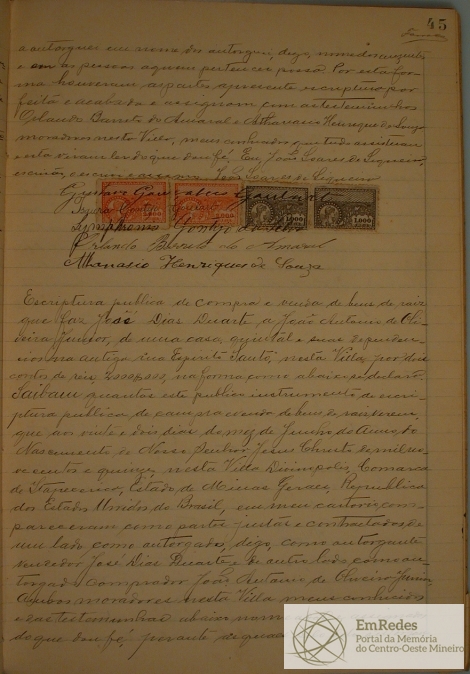 45
a outorgar em nome dos outorgan, digo, nomeados
e em as pessoas a quem pertencer possa. Por esta for
ma houveram as partes a presente escriptura por
feita e acabada e assignam com as testemunhas
Orlando Barreto do Amaral e Athanasio Henriques de Souza
moradores nesta Villa, meus conhecidos que tudo assistiram
do que dou fé. Eu, João Soares de
escrivão, a escrevi e assigno. João Soares de
Gustavo
Gontijo
Symphronio Gontijo da Silva
Orlando Barreto do Amaral
Athanasio Henriques de Souza
1.000
1.000
1.000
1.000
Escriptura publica de compra e venda de bens de raiz
que faz José Dias Duarte a João Antonio de Oli
veira Junior, de uma casa, quintal e suas dependen
cias na antiga rua Espirito Santo, nesta Villa, por dois
contos de réis, 2:000$000, na forma como abaixo se declara.
Saibam quantos este publico instrumento de escri
ptura publica de compra e venda de bens de raiz virem
que aos vinte e dois dias do mez de Junho do Anno do
Nascimento de Nosso Senhor Jesus Christo de mil no
vecentos e quinze, nesta Villa Divinopolis, Comarca
de Itapecerica, Estado de Minas Geraes, Republica
dos Estados Unidos do Brasil, em meu cartorio com
pareceram como partes justas e contractadas, de
um lado como outorgados, digo, como outorgante
vendedor José Dias Duarte, de outro lado como ou
torgado comprador João Antonio de Oliveira Junior
Ambos moradores nesta Villa meus conhecidos
e das testemunhas abaixo
do que dou fé, perante as quaes
EmRedes
Portal da Memória
do Centro-Oeste Mineiro